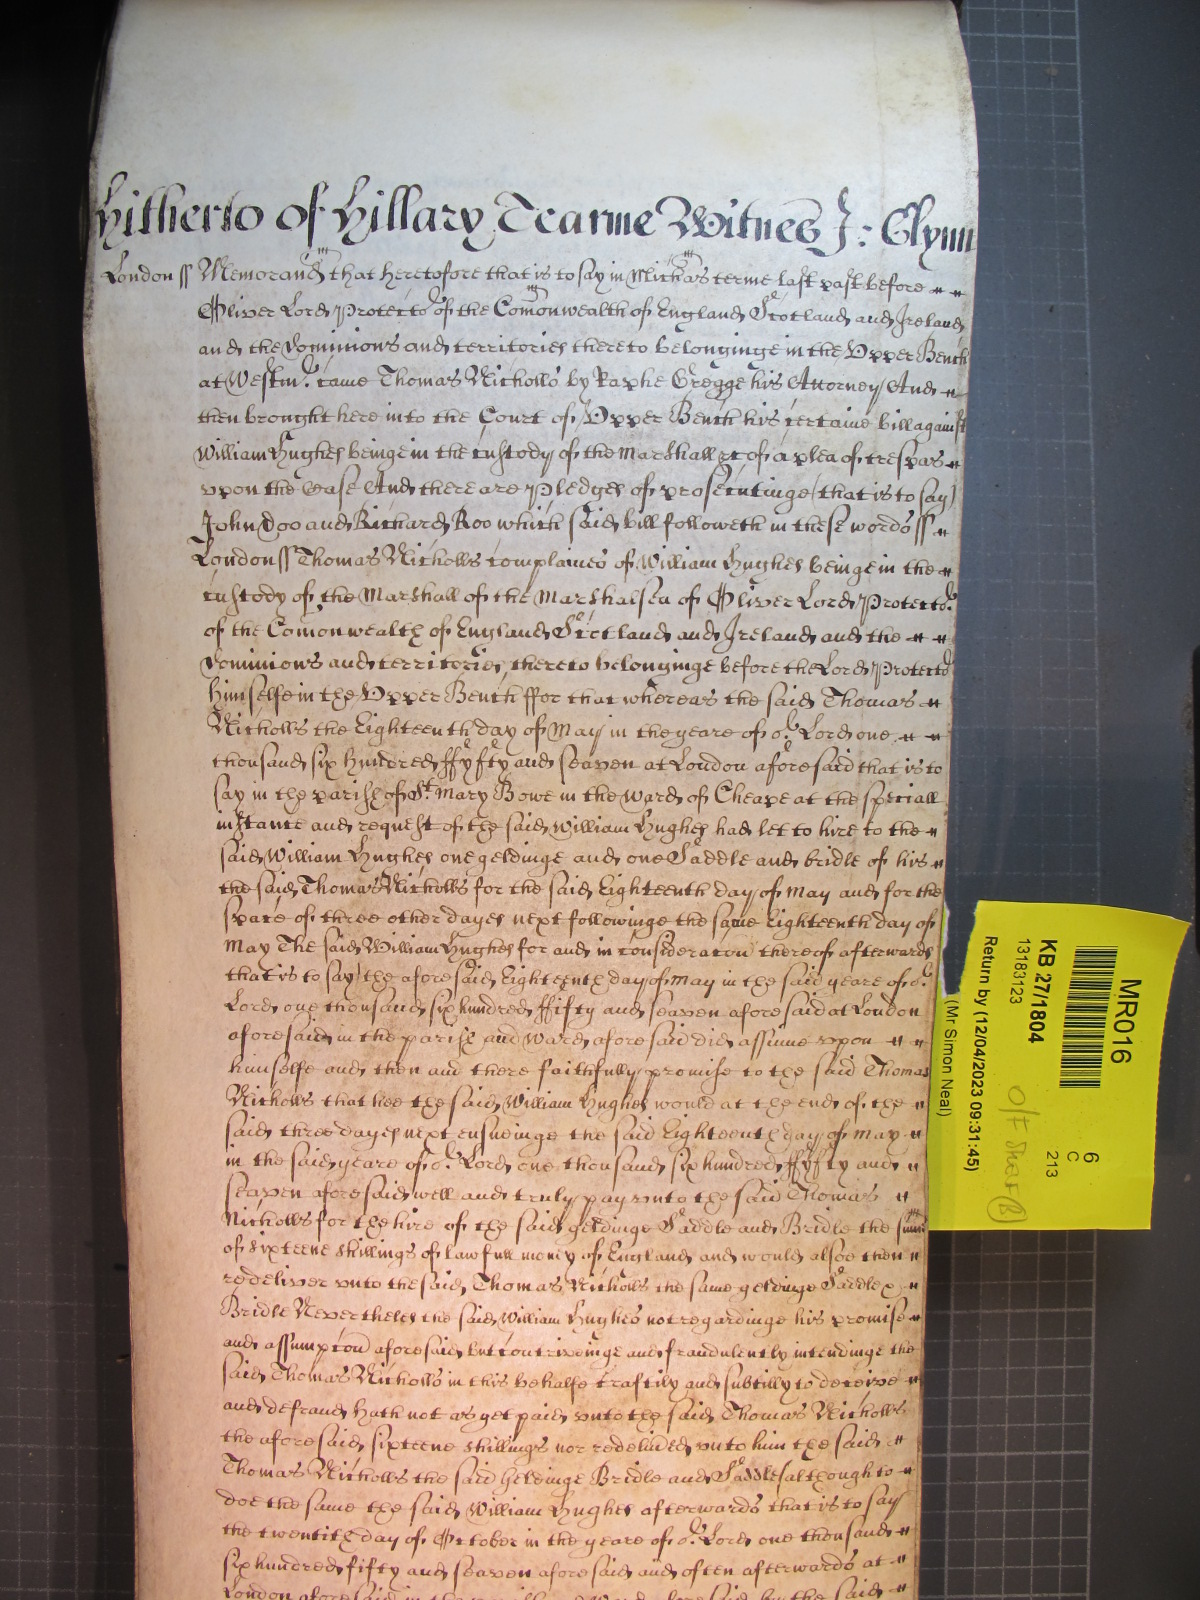 Hitherto of Hillary Tearme Witnes J: Glynn
London ss Memorand that heretofore that is to say in Michas terme last past before
Oliver Lord Protector of the Comonwealth of England Scotland and Ireland
and the Dominions and territories thereto belonginge in the Upper Bench
at Westmr came Thomas Nicholls by Raphe Gregge his Attorney And
then brought here into the Court of Upper Bench his certaine bill against
William Hughes beinge in the custody of the Marshall &c of a plea of trespas
upon the Case And there are Pledges of prosecutinge (that is to say)
John Doo and Richard Roo which said bill followeth in these words ss
London ss Thomas Nicholls complaines of William Hughes beinge in the
custody of the Marshall of the Marshalsea of Oliver Lord Protector
of the Comonwealth of England Scotland and Ireland and the
Dominions and territories thereto belonginge before the Lord Protector
himselfe in the Upper Bench ffor that whereas the said Thomas
Nicholls the Eighteenth day of May in the yeare of or Lord one
thousand six hundred ffyfty and seaven at London aforesaid that is to
say in the parish of St Mary Bowe in the ward of Cheape at the speciall
instance and request of the said William Hughes had let to hire to the
said William Hughes one geldinge and one Saddle and bridle of his
the said Thomas Nicholls for the said Eighteenth day of May and for the
space of three other dayes next followinge the same Eighteenth day of
May The said William Hughes for and in consideracon thereof afterwards
that is to say the aforesaid Eighteenth day of May in the said yeare of or
Lord one thousand six hundred ffifty and seaven aforesaid at London
aforesaid in the parish and ward aforesaid did assume upon
himselfe and then and there faithfully promise to the said Thomas
Nicholls that hee the said William Hughes would at the end of the
said three dayes next ensueinge the said Eighteenth day of May
in the said yeare of or Lord one thousand six hundred ffyfty and
seaven aforesaid well and truly pay unto the said Thomas
Nicholls for the hire of the said geldinge Saddle and Bridle the sume
of sixteene shillings of lawfull money of England and would alsoe then
redeliver unto the said Thomas Nicholls the same geldinge Saddle &
Bridle Nevertheles the said William Hughes not regardinge his promise
and assumpcon aforesaid but contrivinge and fraudulently intendinge the
said Thomas Nicholls in this behalfe craftily and subtilly to deceive
and defraud hath not as yet paid unto the said Thomas Nicholls
the aforesaid sixteene shillings nor redelivered unto him the said
Thomas Nicholls the said geldinge Bridle and Saddle (although to
doe the same the said William Hughes afterwards that is to say
the twentith day of October in the yeare of or Lord one thousand
six hundred fifty and seaven aforesaid and often afterwards at
London aforesaid in the parish and Ward aforesaid by the said
MR016
6
C
213
KB 27/1804
13183123
Return by (12/04/2023 09:31:45)
(Mr Simon Neal)